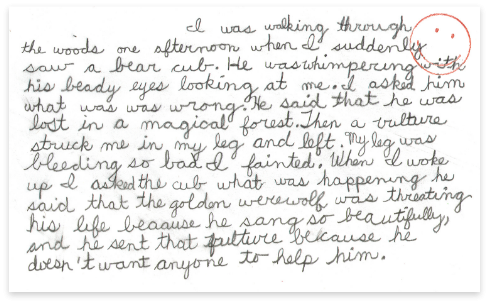 I was walking through
the woods one afternoon when I suddenly
saw a bear cub. He was whimpering with
his beady eyes looking at me. I asked him
what was was wrong. He said that he was
lost in a magical forest. Then a vulture
struck me in my leg and left. My leg was
bleeding so bad I fainted. When I woke
up I asked the cub what was happening he
said that the golden werewolf was threating
his life because he sang so beautifully,
and he sent that vulture because he
doesn't want anyone to help him.